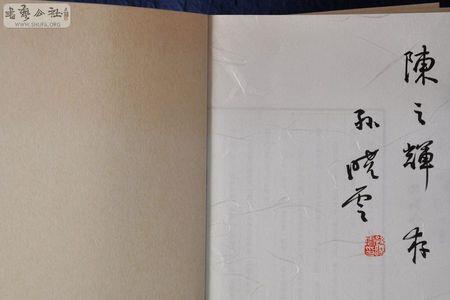 陳之輝 存
孫曉雲
书艺公社
WWW.SHUFA.ORG